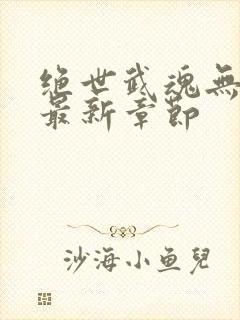 绝世武魂無
最新章節
沙海小鱼兒